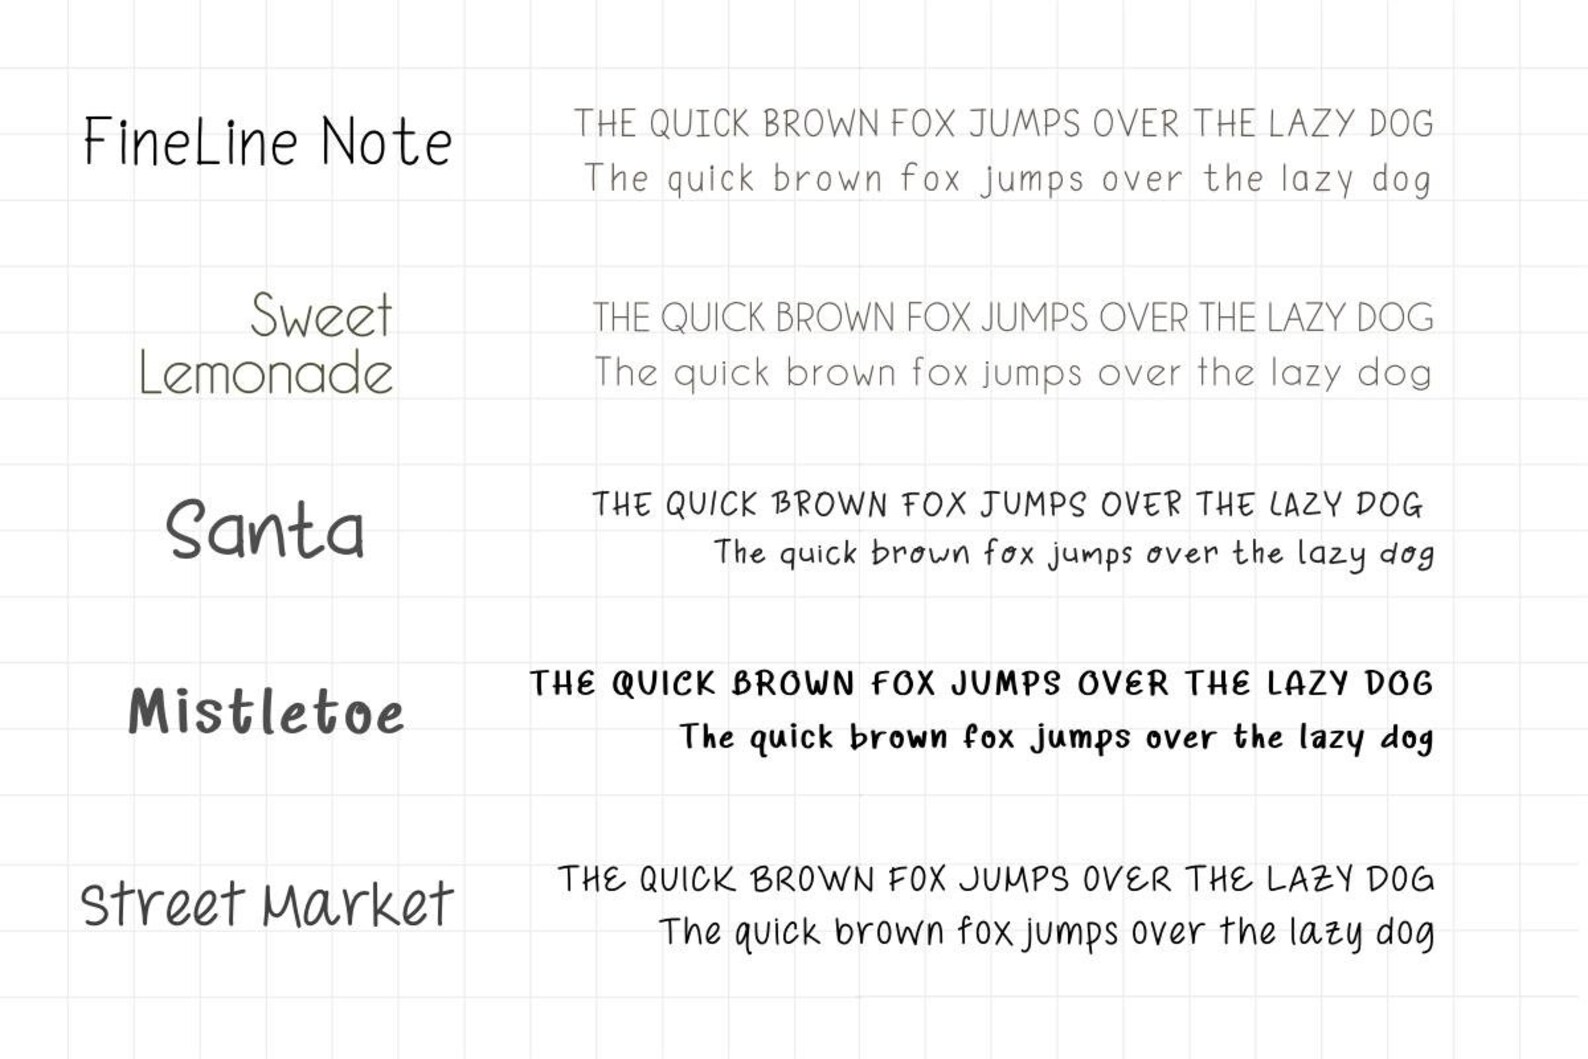 FineLine Note
THE QUICK BROWN FOX JUMPS OVER THE LAZY DOG
The quick brown fox jumps over the lazy dog
Sweet
Lemonade
THE QUICK BROWN FOX JUMPS OVER THE LAZY DOG
The quick brown fox jumps over the lazy dog
Santa
THE QUICK BROWN FOX JUMPS OVER THE LAZY DOG
The quick brown fox jumps over the lazy dog
Mistletoe
THE QUICK BROWN FOX JUMPS OVER THE LAZY DOG
The quick brown fox jumps over the lazy dog
Street Market
THE QUICK BROWN FOX JUMPS OVER THE LAZY DOG
The quick brown fox jumps over the lazy dog